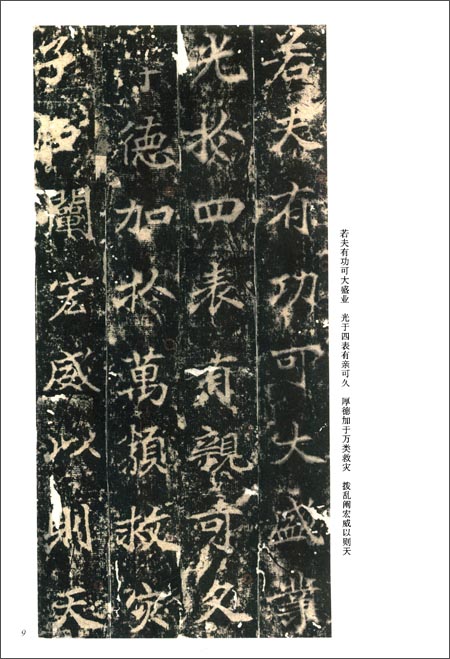 若夫有功可大盛業
光於四表有親可久
德加於萬類救灾
闡宏威以則天
若夫有功可大盛业 光于四表有亲可久 厚德加于万类救灾 拨乱阐宏威以则天
9